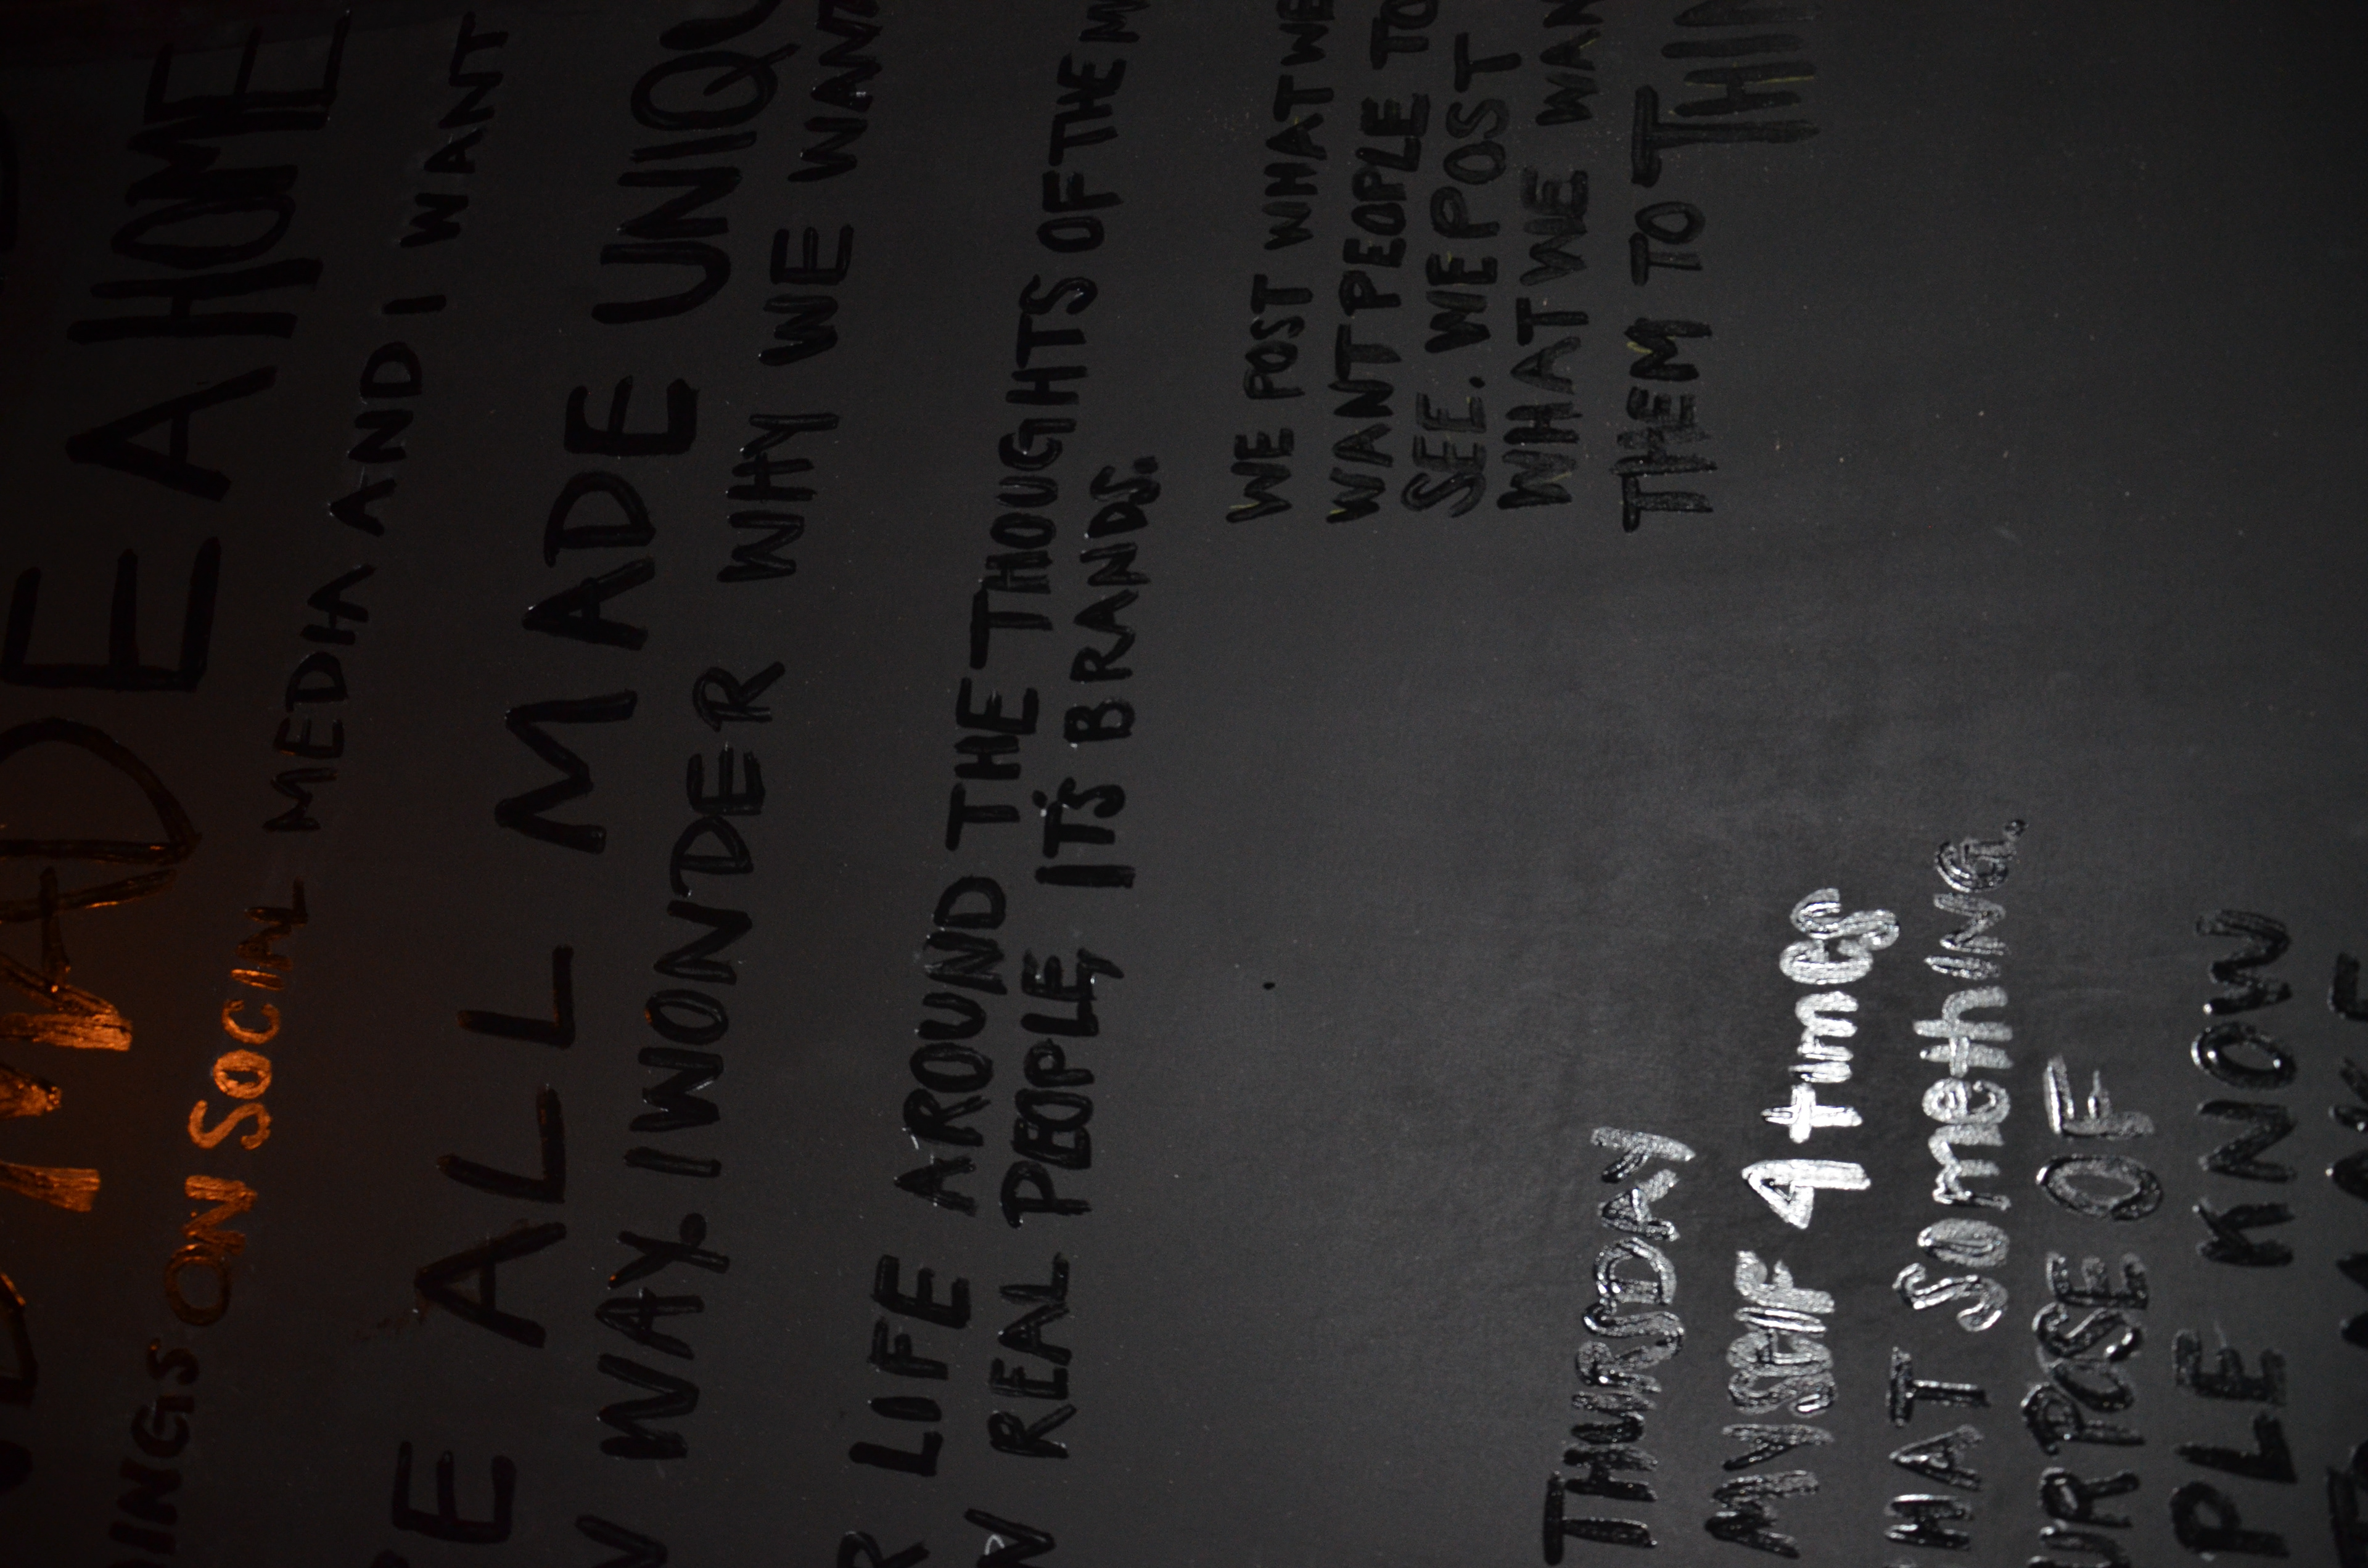 MADE A HOME
INGS ON SOCIAL MEDIA AND I WANT
E ALL MADE UNIQU
WAY. I WONDER WHY WE WANT
R LIFE AROUND THE THOUGHTS OF THE M
REAL PEOPLE, ITS BRANDS.
WE POST WHAT WE
WANT PEOPLE TO
SEE. WE POST
WHAT WE WAN
THEM TO THIN
THURSDAY
MYSElF 4 timеs
HAT SOmethING.
URPOSE OF
PLE KNOW